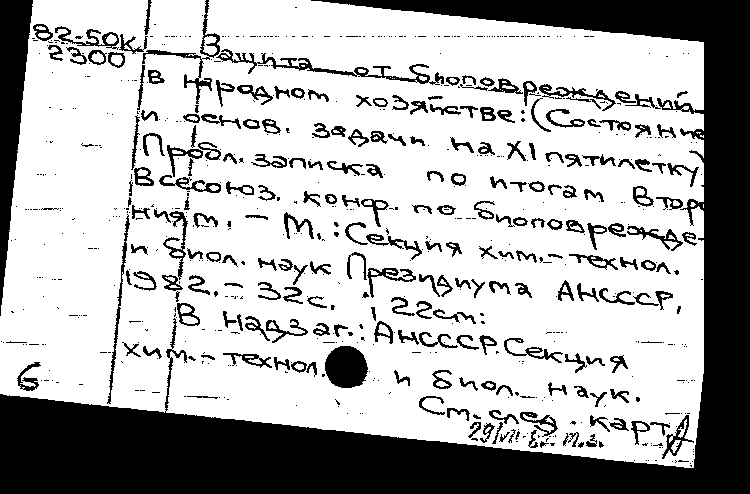 82-50К
2300
Защита от биоповреждений
в народном хозяйстве: (Состояние
и основ. задачи на XI пятилетку)
Пробл. записка по итогам Втор
Всесоюз. конф. по биоповрежде-
ниям. - М.: Секция хим.-технол.
и биол. наук Президиума АНСССР,
1982. - 32с. ; 22см.
В надзаг.: АНСССР. Секция
хим.-технол. и биол. наук.
См. след. карт.
б